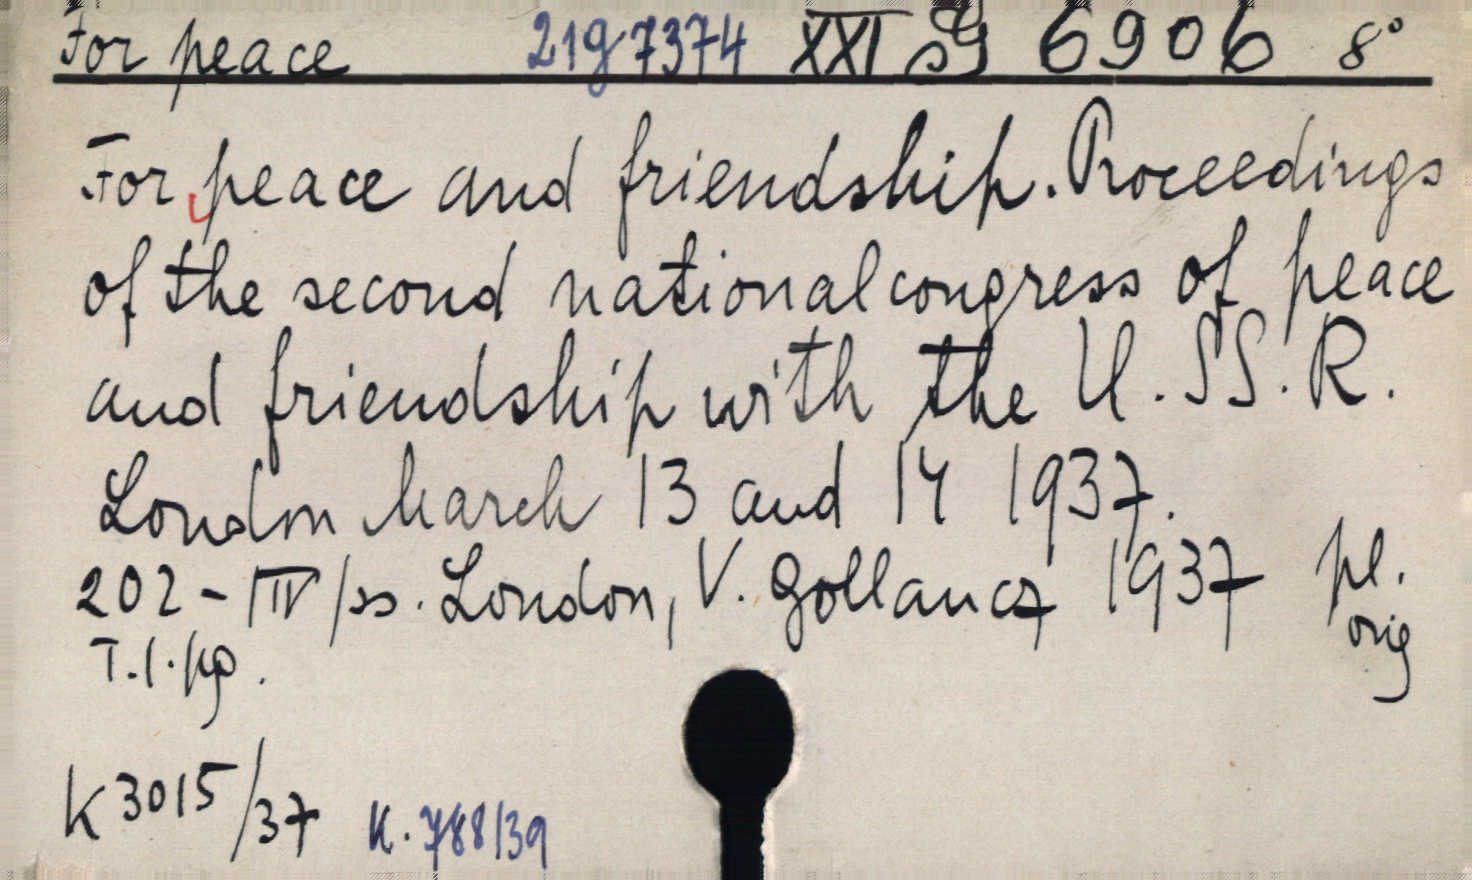 For peace 21g7374 XXI G 6906 8°
For peace and friendship. Proceedings
of the second national congress of peace
and friendship with the U.SS.R.
London March 13 and 14 1937.
202 - IV / ss. London, V. Gollancz 1937 pl.
T.l. orig
K 3015/37 K. 788/39